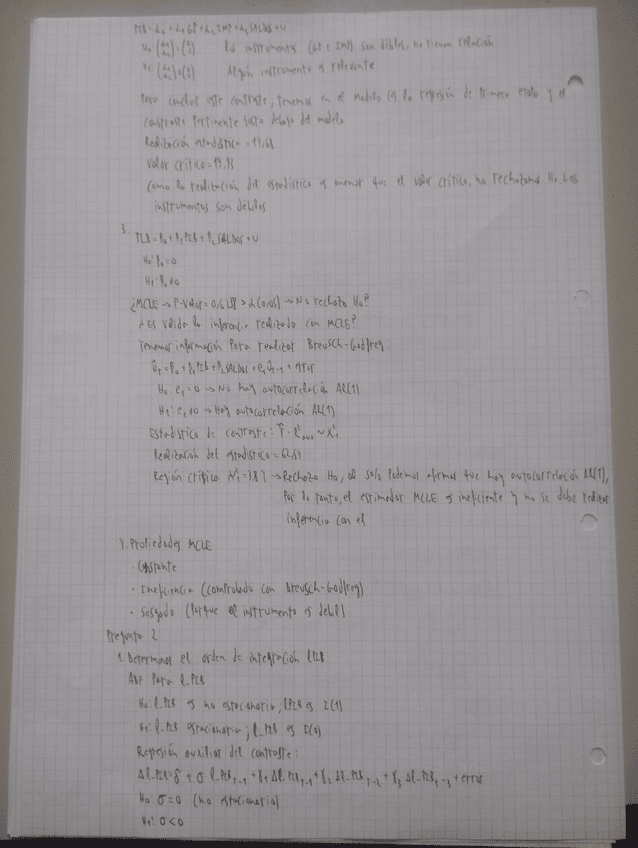 PIB = α₀ + α₁ GP + α₂ IMP + α₃ SALDOS + U
H₀: (α₁ α₂) = (0 0) Los instrumentos (GP e IMP) son débiles, no tienen relación
H₁: (α₁ α₂) ≠ (0 0) Algún instrumento es relevante
Para concluir este contraste, tenemos en el modelo la regresión de primera etapa y el
contraste pertinente justo debajo del modelo
Realización estadístico = 14,68
Valor crítico = 19,93
Como la realización del estadístico es menor que el valor crítico, no rechazamos H₀. Los
instrumentos son débiles
3.
TLB = β₀ + β₁ PIB + β₂ SALDOS + U
H₀: β₀ = 0
H₁: β₀ ≠ 0
¿MCLE → P-valor = > α (0,05) → No rechazo H₀?
¿Es válida la inferencia realizada con MCLE?
Tenemos información para realizar Breusch-Godfrey
Û_T = β₀ + β₁ PIB + β₂ SALDOS + e₁ Û_T-1 + error
H₀: e₁ = 0 → No hay autocorrelación AR(1)
H₁: e₁ ≠ 0 → Hay autocorrelación AR(1)
Estadístico de contraste: T · R²aux ~ X²₁
Realización del estadístico =
Región crítica → Rechazo H₀, al 5% podemos afirmar que hay autocorrelación AR(1),
Por lo tanto, el estimador MCLE es ineficiente y no se debe realizar
inferencia con el
4. Propiedades MCLE
· Ineficiencia (comprobado con Breusch-Godfrey)
· Sesgado (Porque el instrumento es debil)
Pregunta 2
1. Determinar el orden de integración l_PIB
ADF Para l_PIB
H₀: l_PIB es no estacionaria; l_PIB es I(1)
H₁: l_PIB estacionaria; l_PIB es I(0)
Regresión auxiliar del contraste:
Δl_PIB = δ + σ l_PIB_T-1 + γ₁ Δl_PIB_T-1 + γ₂ Δl_PIB_T-2 + γ₃ Δl_PIB_T-3 + error
H₀: σ = 0 (no estacionaria)
H₁: σ < 0